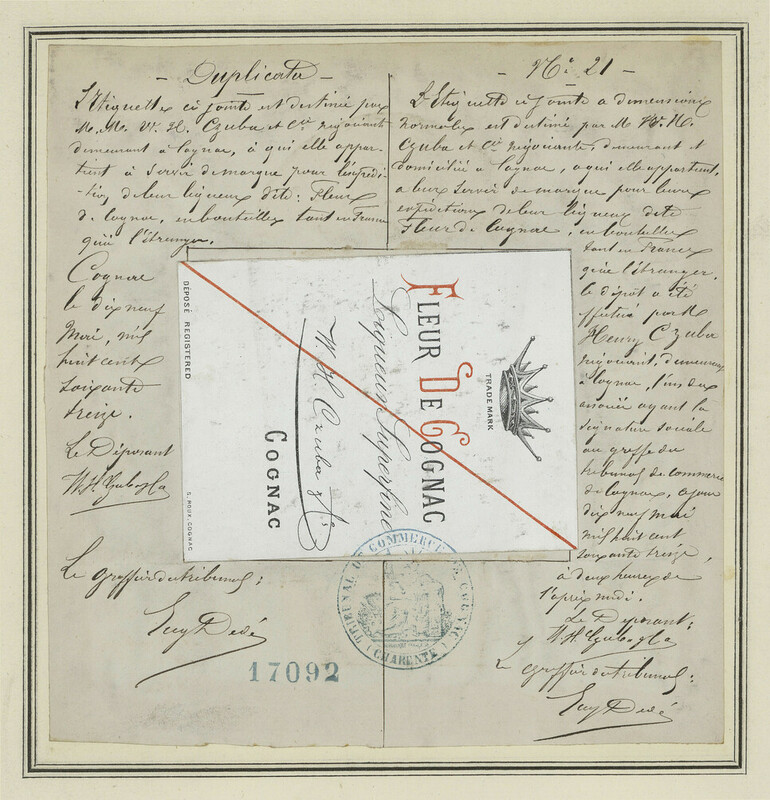 - Duplicata -
L'Etiquette ci jointe est destinée par
M.M. W. H. Czuba et Cie négociant
demeurant à Cognac, à qui elle appar-
tient à servir de marque pour l'expédi-
tion de leur liqueur dite: Fleur
de Cognac, en bouteilles tant en France
qu'à l'étranger.
Cognac
le dix neuf
Mai, mil
huit cent
soixante
treize.
Le Déposant
W. H. Czuba & Ca
Le greffier du tribunal:
17092
- No. 21 -
L'Etiquette ci jointe a dimensions
normales est destiné par M W. H.
Czuba et Cie négociants, demeurant et
domicilié à Cognac, a qui elle appartient,
a leur servir de marque pour leurs
expéditions de leur liqueur dite
Fleur de Cognac, en bouteilles
tant en France
qu'a l'étranger.
le dépôt a été
effectué par M
Henry Czuba
négociant, demeurant
à Cognac, l'un des
associés ayant la
signature sociale
au greffe du
tribunal de commerce
de Cognac, ce jour
dix neuf mai
mil huit cent
soixante treize,
à deux heures de
l'après midi.
Le Déposant:
W. H. Czuba & Ca
Le greffier du tribunal:
TRADEMARK
FLEUR DE COGNAC
Liqueur Superfine
W. H. Czuba & Cie
COGNAC
DÉPOSÉ REGISTERED
G. ROUX, COGNAC
TRIBUNAL DE COMMERCE DE COGNAC
(CHARENTE)